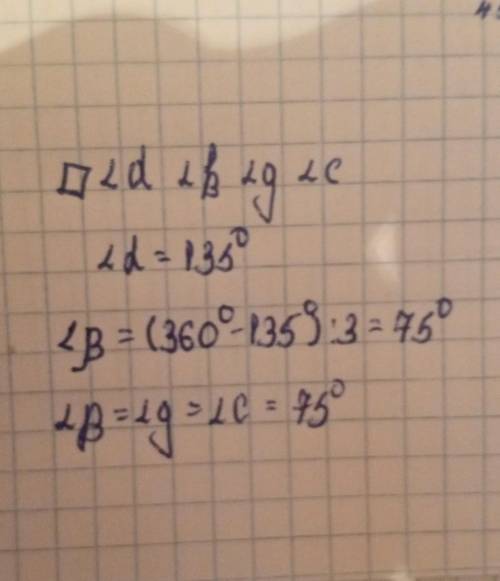 □ ∠d ∠β ∠g ∠c
∠d = 135⁰
∠β = (360⁰ - 135⁰) : 3 = 75⁰
∠β = ∠g = ∠c = 75⁰